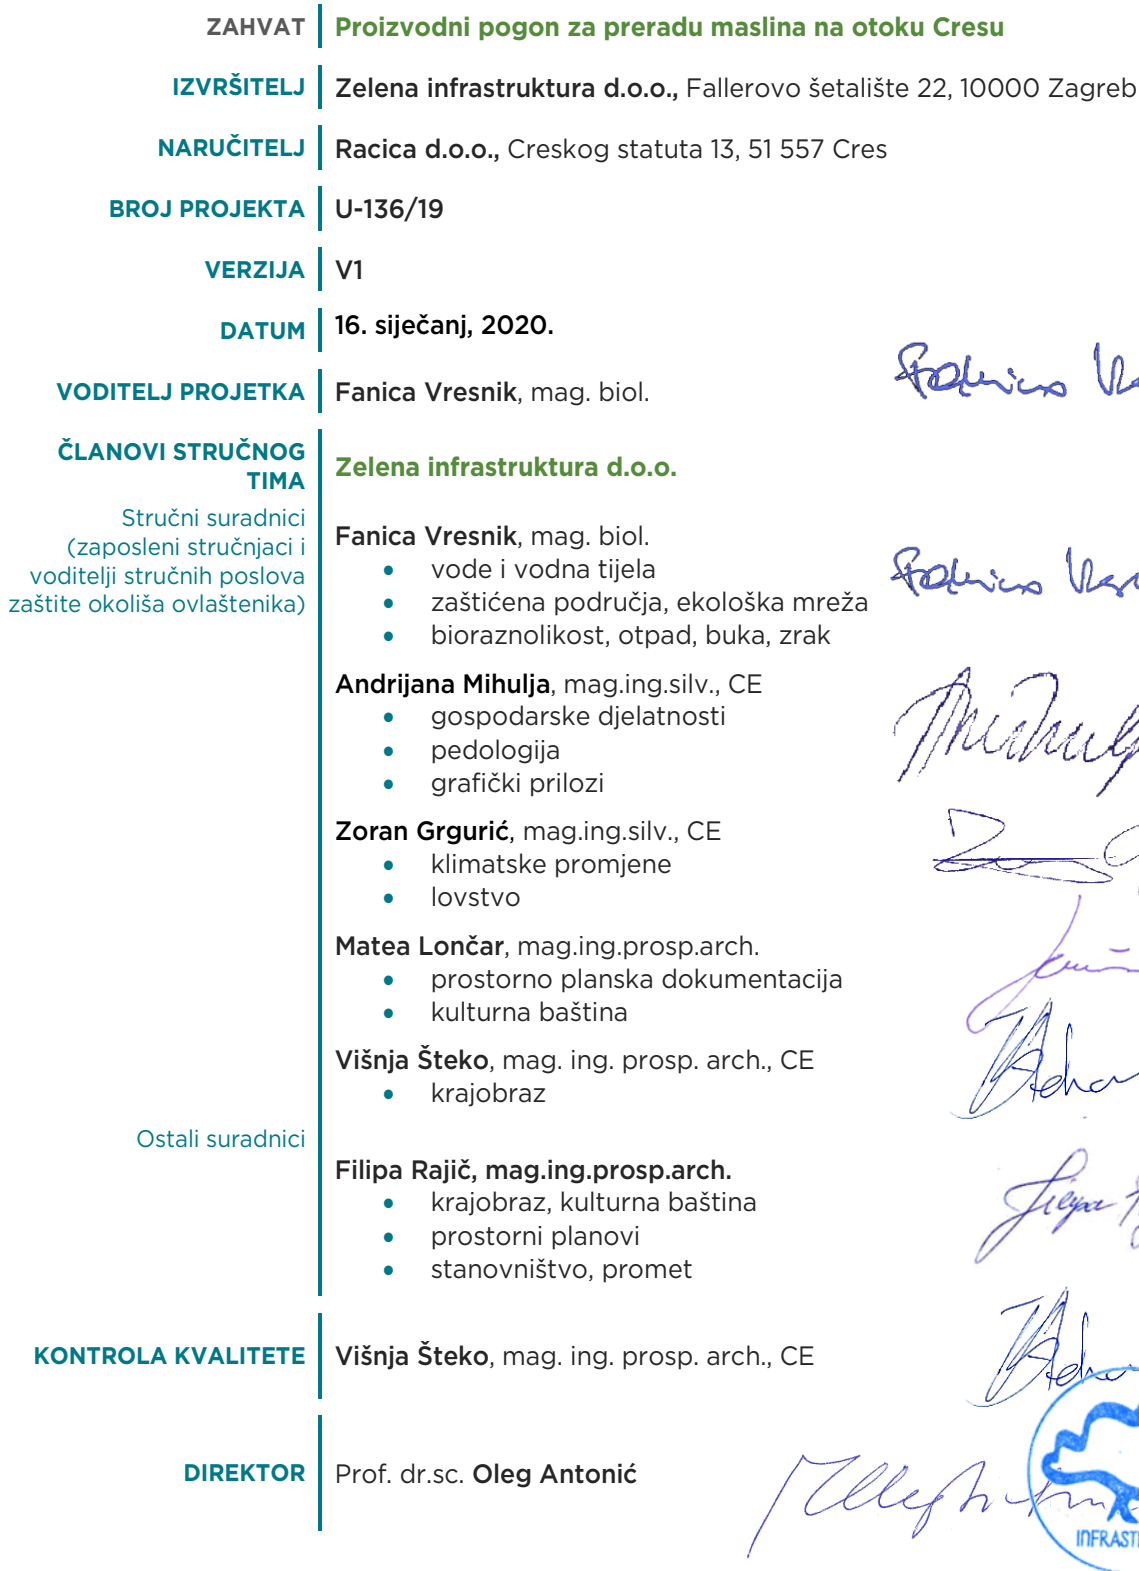 ZAHVAT Proizvodni pogon za preradu maslina na otoku Cresu
IZVRŠITELJ Zelena infrastruktura d.o.o., Fallerovo šetalište 22, 10000 Zagreb
NARUČITELJ Racica d.o.o., Creskog statuta 13, 51 557 Cres
BROJ PROJEKTA U-136/19
VERZIJA V1
DATUM 16. siječanj, 2020.
VODITELJ PROJETKA Fanica Vresnik, mag. biol.
ČLANOVI STRUČNOG
TIMA
Zelena infrastruktura d.o.o.
Stručni suradnici
(zaposleni stručnjaci i
voditelji stručnih poslova
zaštite okoliša ovlaštenika)
Fanica Vresnik, mag. biol.
• vode i vodna tijela
• zaštićena područja, ekološka mreža
• bioraznolikost, otpad, buka, zrak
Andrijana Mihulja, mag.ing.silv., CE
• gospodarske djelatnosti
• pedologija
• grafički prilozi
Zoran Grgurić, mag.ing.silv., CE
• klimatske promjene
• lovstvo
Matea Lončar, mag.ing.prosp.arch.
• prostorno planska dokumentacija
• kulturna baština
Višnja Šteko, mag. ing. prosp. arch., CE
• krajobraz
Ostali suradnici
Filipa Rajič, mag.ing.prosp.arch.
• krajobraz, kulturna baština
• prostorni planovi
• stanovništvo, promet
KONTROLA KVALITETE Višnja Šteko, mag. ing. prosp. arch., CE
DIREKTOR Prof. dr.sc. Oleg Antonić